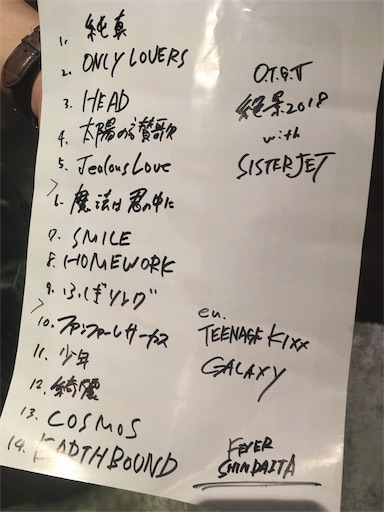 1. 純真
2. ONLY LOVERS
3. HEAD
4. 太陽の讃歌
5. Jealous Love
6. 魔法は君の中に
7. SMILE
8. HOMEWORK
9. ふしぎリング
10. ファンファーレサーカス
11. 少年
12. 綺麗
13. COSMOS
14. EARTHBOUND
O.T.G.T
絶景2018
with
SISTERJET
en.
TEENAGE KIXX
GALAXY
FEVER
SHINDAITA